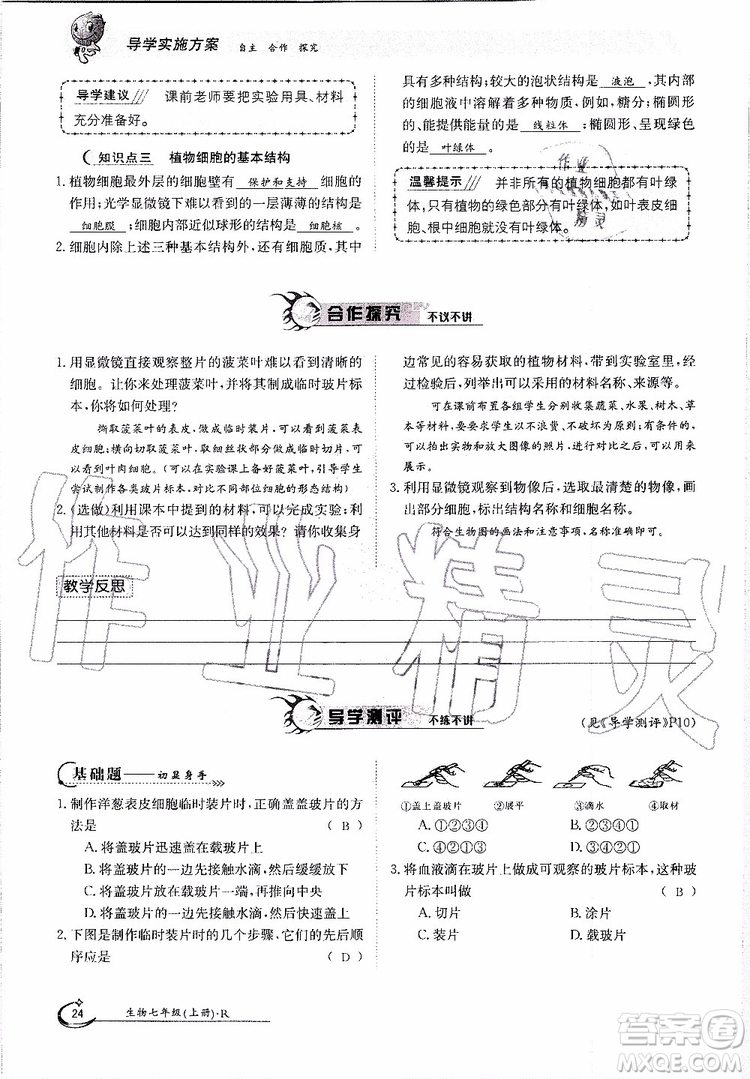 导学实施方案 自主 合作 探究
导学建议 课前老师要把实验用具、材料
充分准备好。
知识点三 植物细胞的基本结构
1. 植物细胞最外层的细胞壁有 保护和支持 细胞的
作用;光学显微镜下难以看到的一层薄薄的结构是
细胞膜 ;细胞内部近似球形的结构是 细胞核 。
2. 细胞内除上述三种基本结构外,还有细胞质,其中
具有多种结构;较大的泡状结构是 液泡 ,其内部
的细胞液中溶解着多种物质,例如,糖分;椭圆形
的、能提供能量的是 线粒体 ;椭圆形、呈现绿色
的是 叶绿体 。
温馨提示 并非所有的植物细胞都有叶绿
体,只有植物的绿色部分有叶绿体,如叶表皮细
胞、根细胞就没有叶绿体。
合作探究 不议不讲
1. 用显微镜直接观察整片的菠菜叶难以看到清晰的
细胞。让你来处理菠菜叶,并将其制成临时玻片标
本,你将如何处理?
撕取菠菜叶的表皮,做成临时装片,可以看到表
皮细胞;横向切取菠菜叶,取细丝状部分做成切片,可
以看到叶肉细胞。(可以在实验课上备好菠菜叶,引导学生
尝试制作各类玻片标本,对比不同部位细胞的形态结构)
2. (选做)利用课本中提到的材料,可以完成实验;利
用其他材料是否可以达到同样的效果?请你收集身
边常见的容易获取的植物材料,带到实验室里,经
过检验后,列举出可以采用的材料名称、来源等。
可在课前布置各组学生分别收集蔬菜、水果、树木、草
本等植物材料,以不浪费、不破坏为原则;有条件的,可以
把观察到的放大图像的照片,进行展示。
3. 利用显微镜观察到物像后,选最清楚的物像,画
出部分细胞,标出细胞的结构和名称。
符合生物图的画法和注意事项,名称标注准确即可。
教学反思
导学测评 不练不讲
(见《导学测评》P10)
基础题——初显身手
1. 制作洋葱表皮细胞临时装片时,正确盖盖玻片的方
法是 ( B )
A. 将盖玻片迅速盖在载玻片上
B. 将盖玻片的一边先接触水滴,然后缓缓放下
C. 将盖玻片放在载玻片一端,再推向中央
D. 将盖玻片的一边先接触水滴,然后迅速放下
2. 下图是制作临时装片的几个步骤,它们的先后顺
序应是 ( D )
①盖上盖玻片 ②展平 ③滴水 ④取材
A. ①②③④ B. ②③④①
C. ③④①② D. ③④②①
3. 将血液滴在玻片上做成可观察的玻片标本,这种玻
片标本叫做 ( B )
A. 切片 B. 涂片
C. 装片 D. 载玻片
24 生物七年级(上册)·R
作业精灵
作业
精灵
答案圈
MXQE.COM